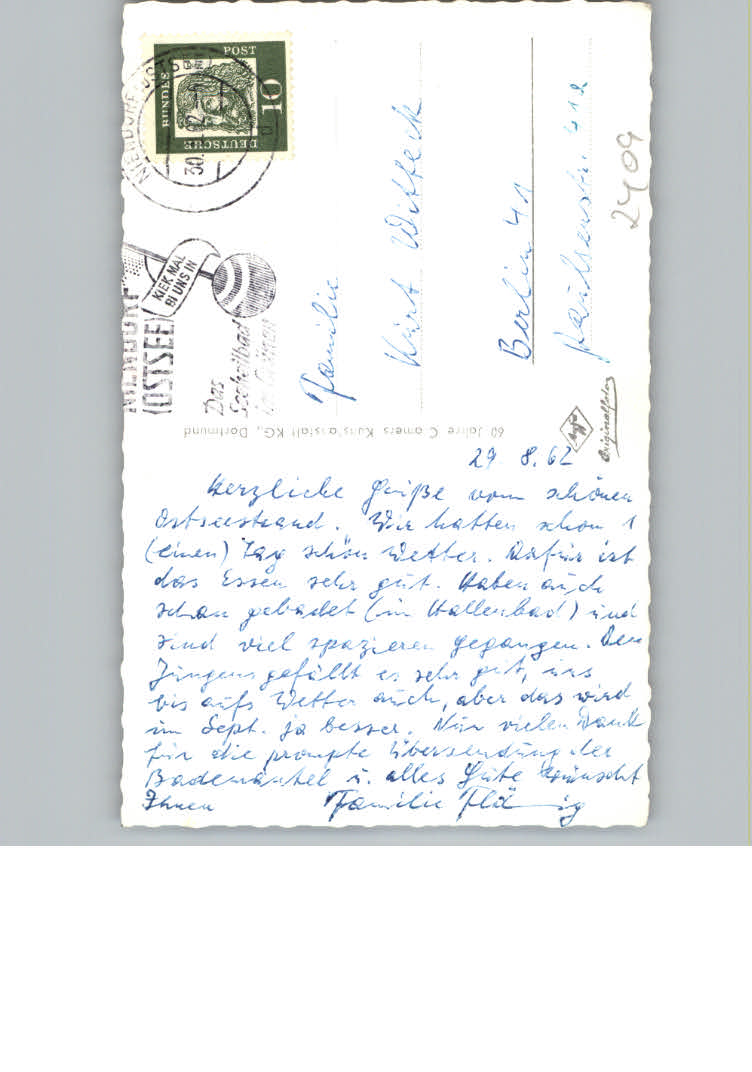 DEUTSCHE
BUNDES
POST
10
NIENDORF (OSTSEE)
30.
KIEK MAL
BI UNS IN
NIENDORF
(OSTSEE)
Das
Seeheilbad
Familie
Kurt Witteck
Berlin 41
2409
60 Jahre Cramers Kunstanstalt KG., Dortmund
Agfa
Originalfoto
29 8.62
Herzliche Grüße vom schönen
Ostseestrand. Wir hatten schon 1
(einen) Tag schön Wetter. Dafür ist
das Essen sehr gut. Haben auch
schon gebadet (im Hallenbad) und
sind viel spazieren gegangen. Den
Jungens gefällt es sehr gut, uns
bis aufs Wetter auch, aber das wird
im Sept. ja besser. Nun vielen Dank
für die prompte Übersendung der
Bademäntel u. alles Gute wünscht
Ihnen Familie